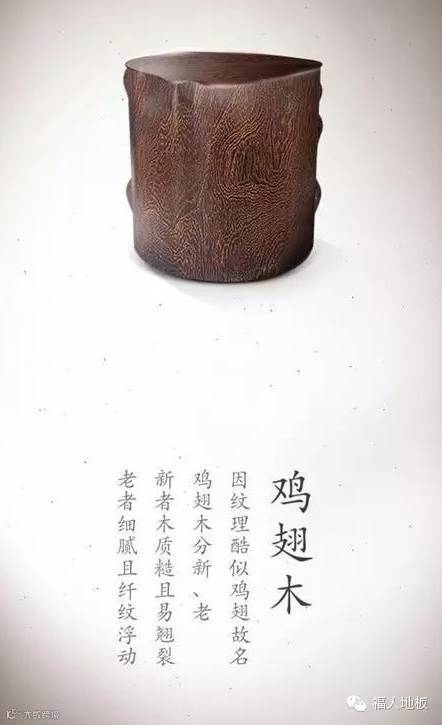 鸡翅木
因纹理酷似鸡翅故名
鸡翅木分新、老
新者木质糙且易翘裂
老者细腻且纤纹浮动
福人地板